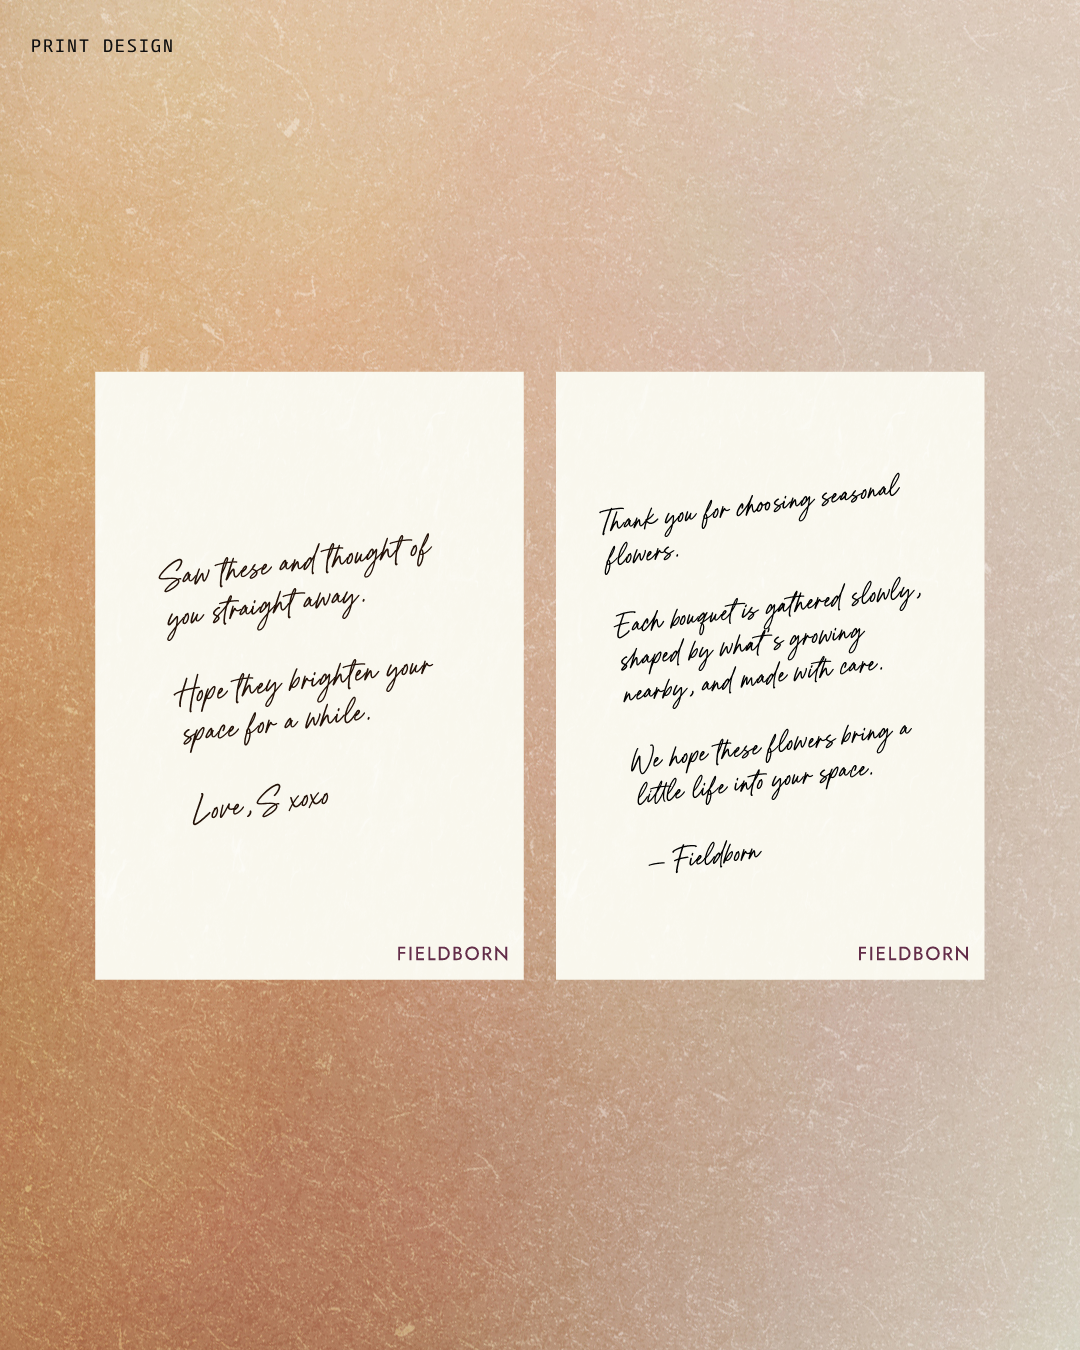 PRINT DESIGN
Saw these and thought of
you straight away.
Hope they brighten your
space for a while.
Love, S xoxo
FIELDBORN
Thank you for choosing seasonal
flowers.
Each bouquet is gathered slowly,
shaped by what's growing
nearby, and made with care.
We hope these flowers bring a
little life into your space.
— Fieldborn
FIELDBORN